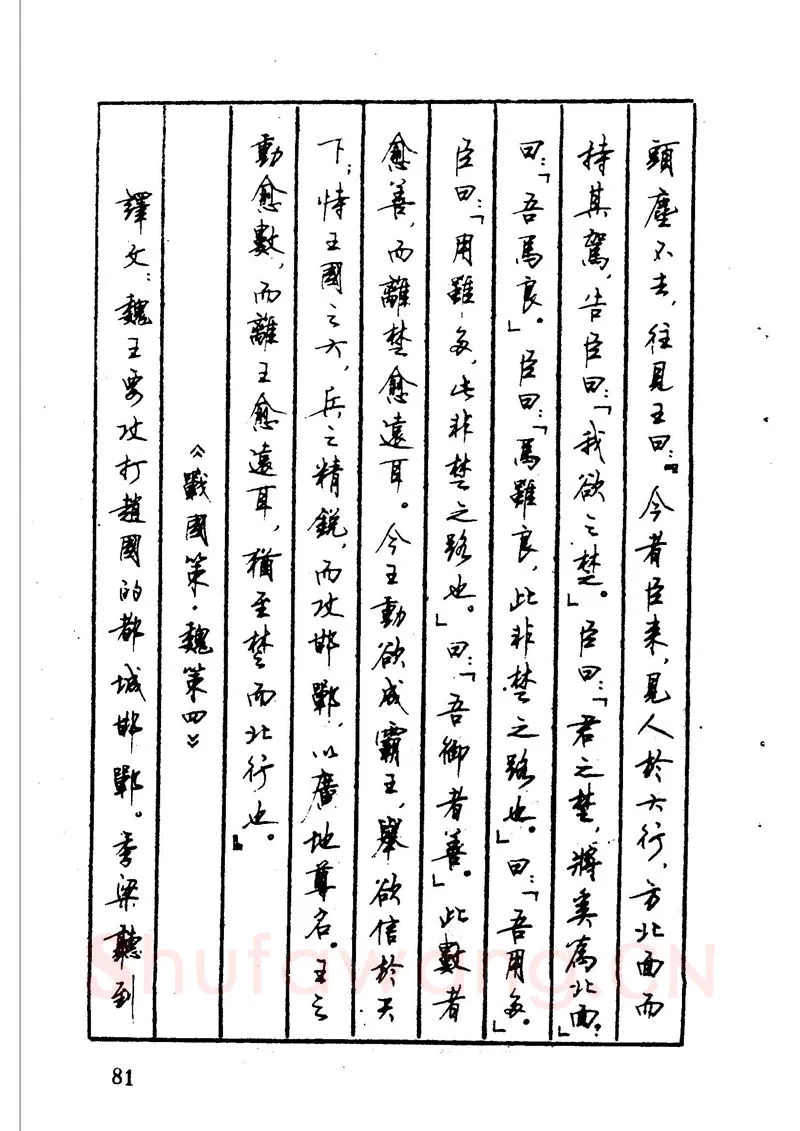 頭塵不去，往見王曰：『今者臣来，見人於大行，方北面而
持其駕，告臣曰：「我欲之楚。」臣曰：「君之楚，將奚為北面？」
曰：「吾馬良。」臣曰：「馬雖良，此非楚之路也。」曰：「吾用多。」
臣曰：「用雖多，此非楚之路也。」曰：「吾御者善。」此數者
愈善，而離楚愈遠耳。今王動欲成霸王，舉欲信於天
下；恃王國之大，兵之精銳，而攻邯鄲，以廣地尊名。王之
動愈數，而離王愈遠耳，猶至楚而北行也。』
《戰國策·魏策四》
譯文：魏王要攻打趙國的都城邯鄲。季梁聽到
81
Shufawang.CN